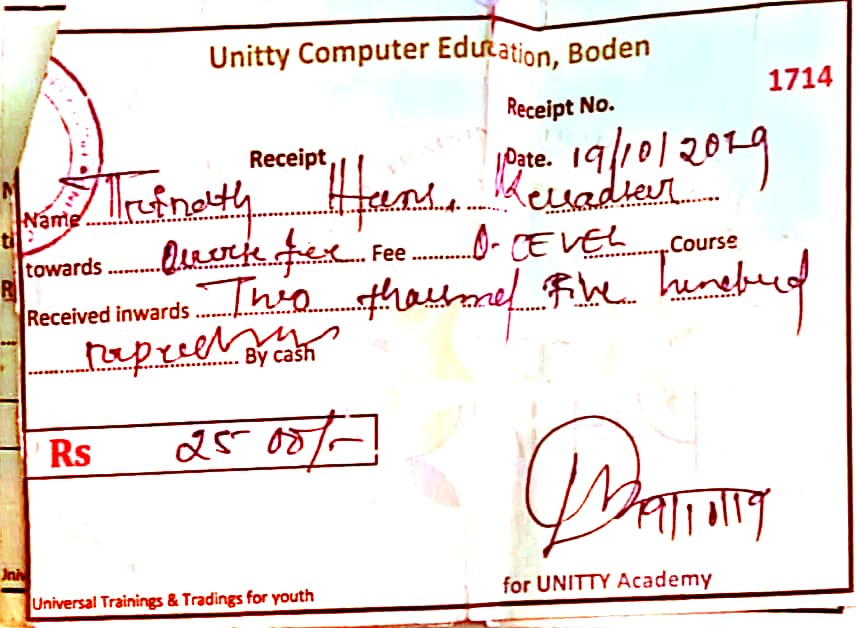 Unitty Computer Education, Boden
1714
Receipt No.
Receipt
Date. 19/10/2019
Name Trinath Hans,
towards fee Fee O-LEVEL Course
Received inwards Two thousand Five hundred
rupees By cash
Rs 2500/-
19/10/19
for UNITTY Academy
Universal Trainings & Tradings for youth